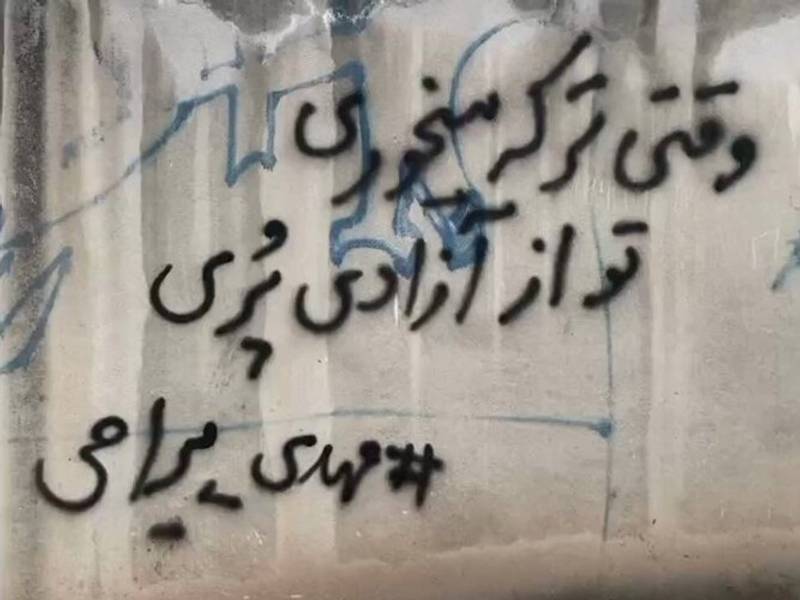 وقتی ترکه میخوری
تو از آزادی پُری
#مهدی_یراحی